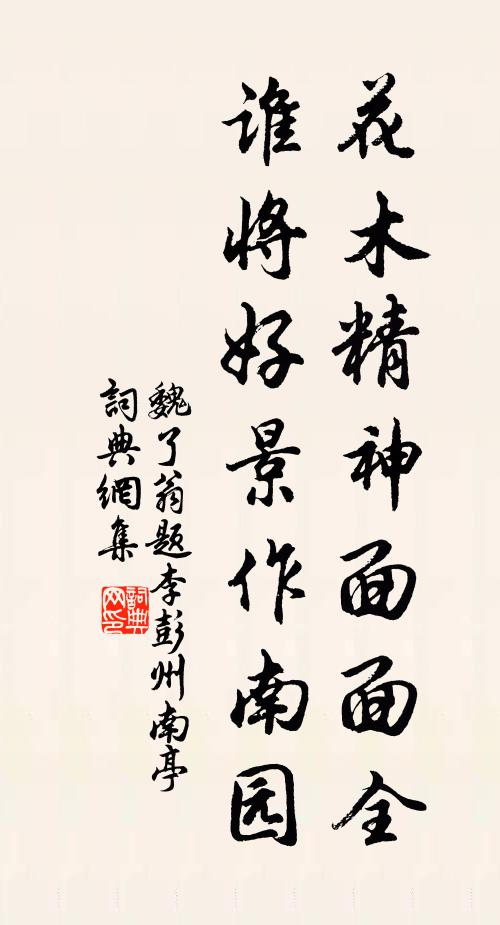 花木精神面面全
谁将好景作南园
魏了翁题李彭州南亭
詞典網集
詞典网印